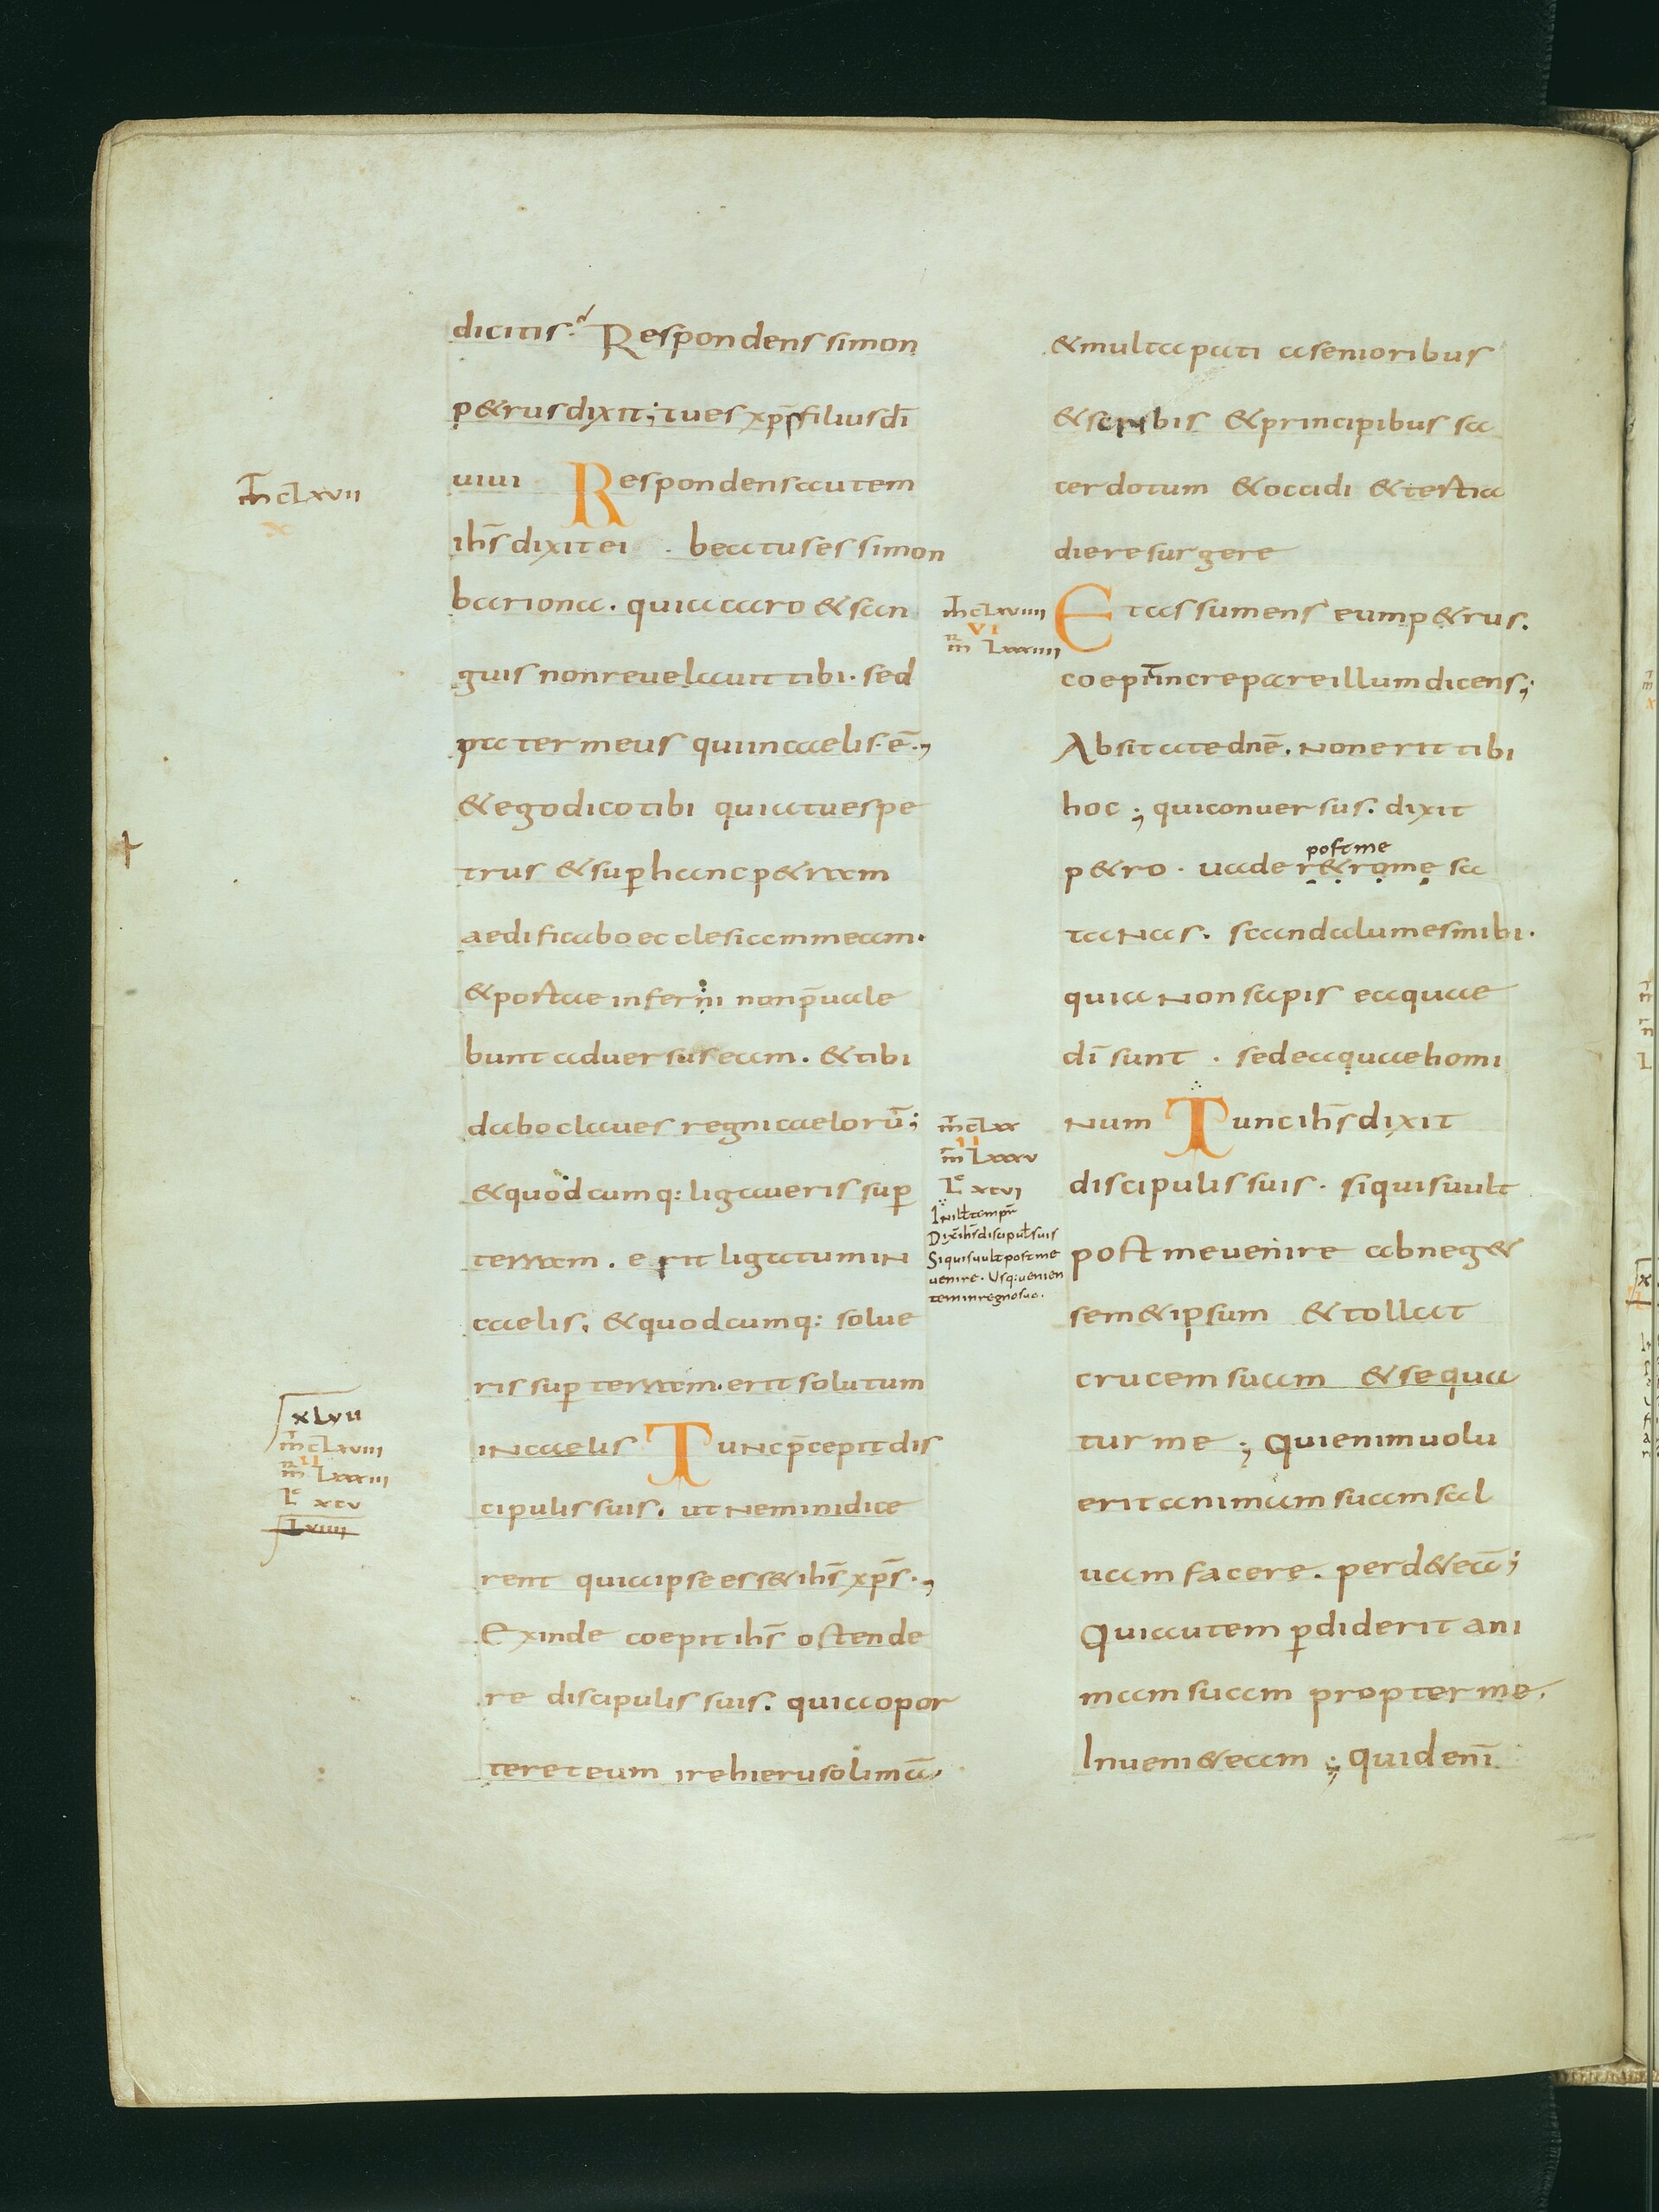 dicitis. Respondens simon
p&rus dixit; tu es xp̄s filius dī
uiui Respondens autem
ih̄s dixit ei . beatus es simon
bariona. quia caro & san
guis non reuelauit tibi. sed
pater meus qui in caelis. ē.,
& ego dico tibi quia tu es pe
trus & sup̄ hanc p&ram
aedificabo ecclesiam meam.
& portae inferni non p̄uale
bunt aduersus eam. & tibi
dabo claues regni caelorū;
& quodcumq: ligaueris sup̄
terram. erit ligatum in
caelis. & quodcumq: solue
ris sup̄ terram. erit solutum
in caelis Tunc p̄cepit dis
cipulis suis. ut nemini dice
rent quia ipse ess& ih̄s xp̄s.,
Exinde coepit ih̄s ostende
re discipulis suis. quia opor
teret eum ire hierusolimā.
m̄ clxvii
x
xlvii
m̄ clxviii
ii
m̄ lxxxiii
l xcv
lxiiii
& multa pati a senioribus
& scribis & principibus sa
cerdotum & occidi & tertia
die resurgere
Et assumens eum p&rus.
coepit increpare illum dicens;
Absit a te dn̄e. non erit tibi
hoc ; qui conuersus. dixit
post me
p&ro . uade r&ro me sa
tanas. scandalum es mihi.
quia non sapis ea quae
dī sunt . sed ea quae homi
num Tunc ih̄s dixit
discipulis suis . si quis uult
post me uenire abneg&
sem&ipsum & tollat
crucem suam & sequa
tur me ; Qui enim uolu
erit animam suam sal
uam facere. perd& eā;
Qui autem p̄diderit ani
mam suam propter me.
Inueni& eam ; Quid enī
m̄ clxviiii
vi
m̄ lxxxiiii
m̄ clxx
ii
m̄ lxxxv
l xcvi
In ill temp̄r
Dix̄ ih̄s discipul suis
Si quis uult post me
uenire. Usq: uenien
tem in regno suo.